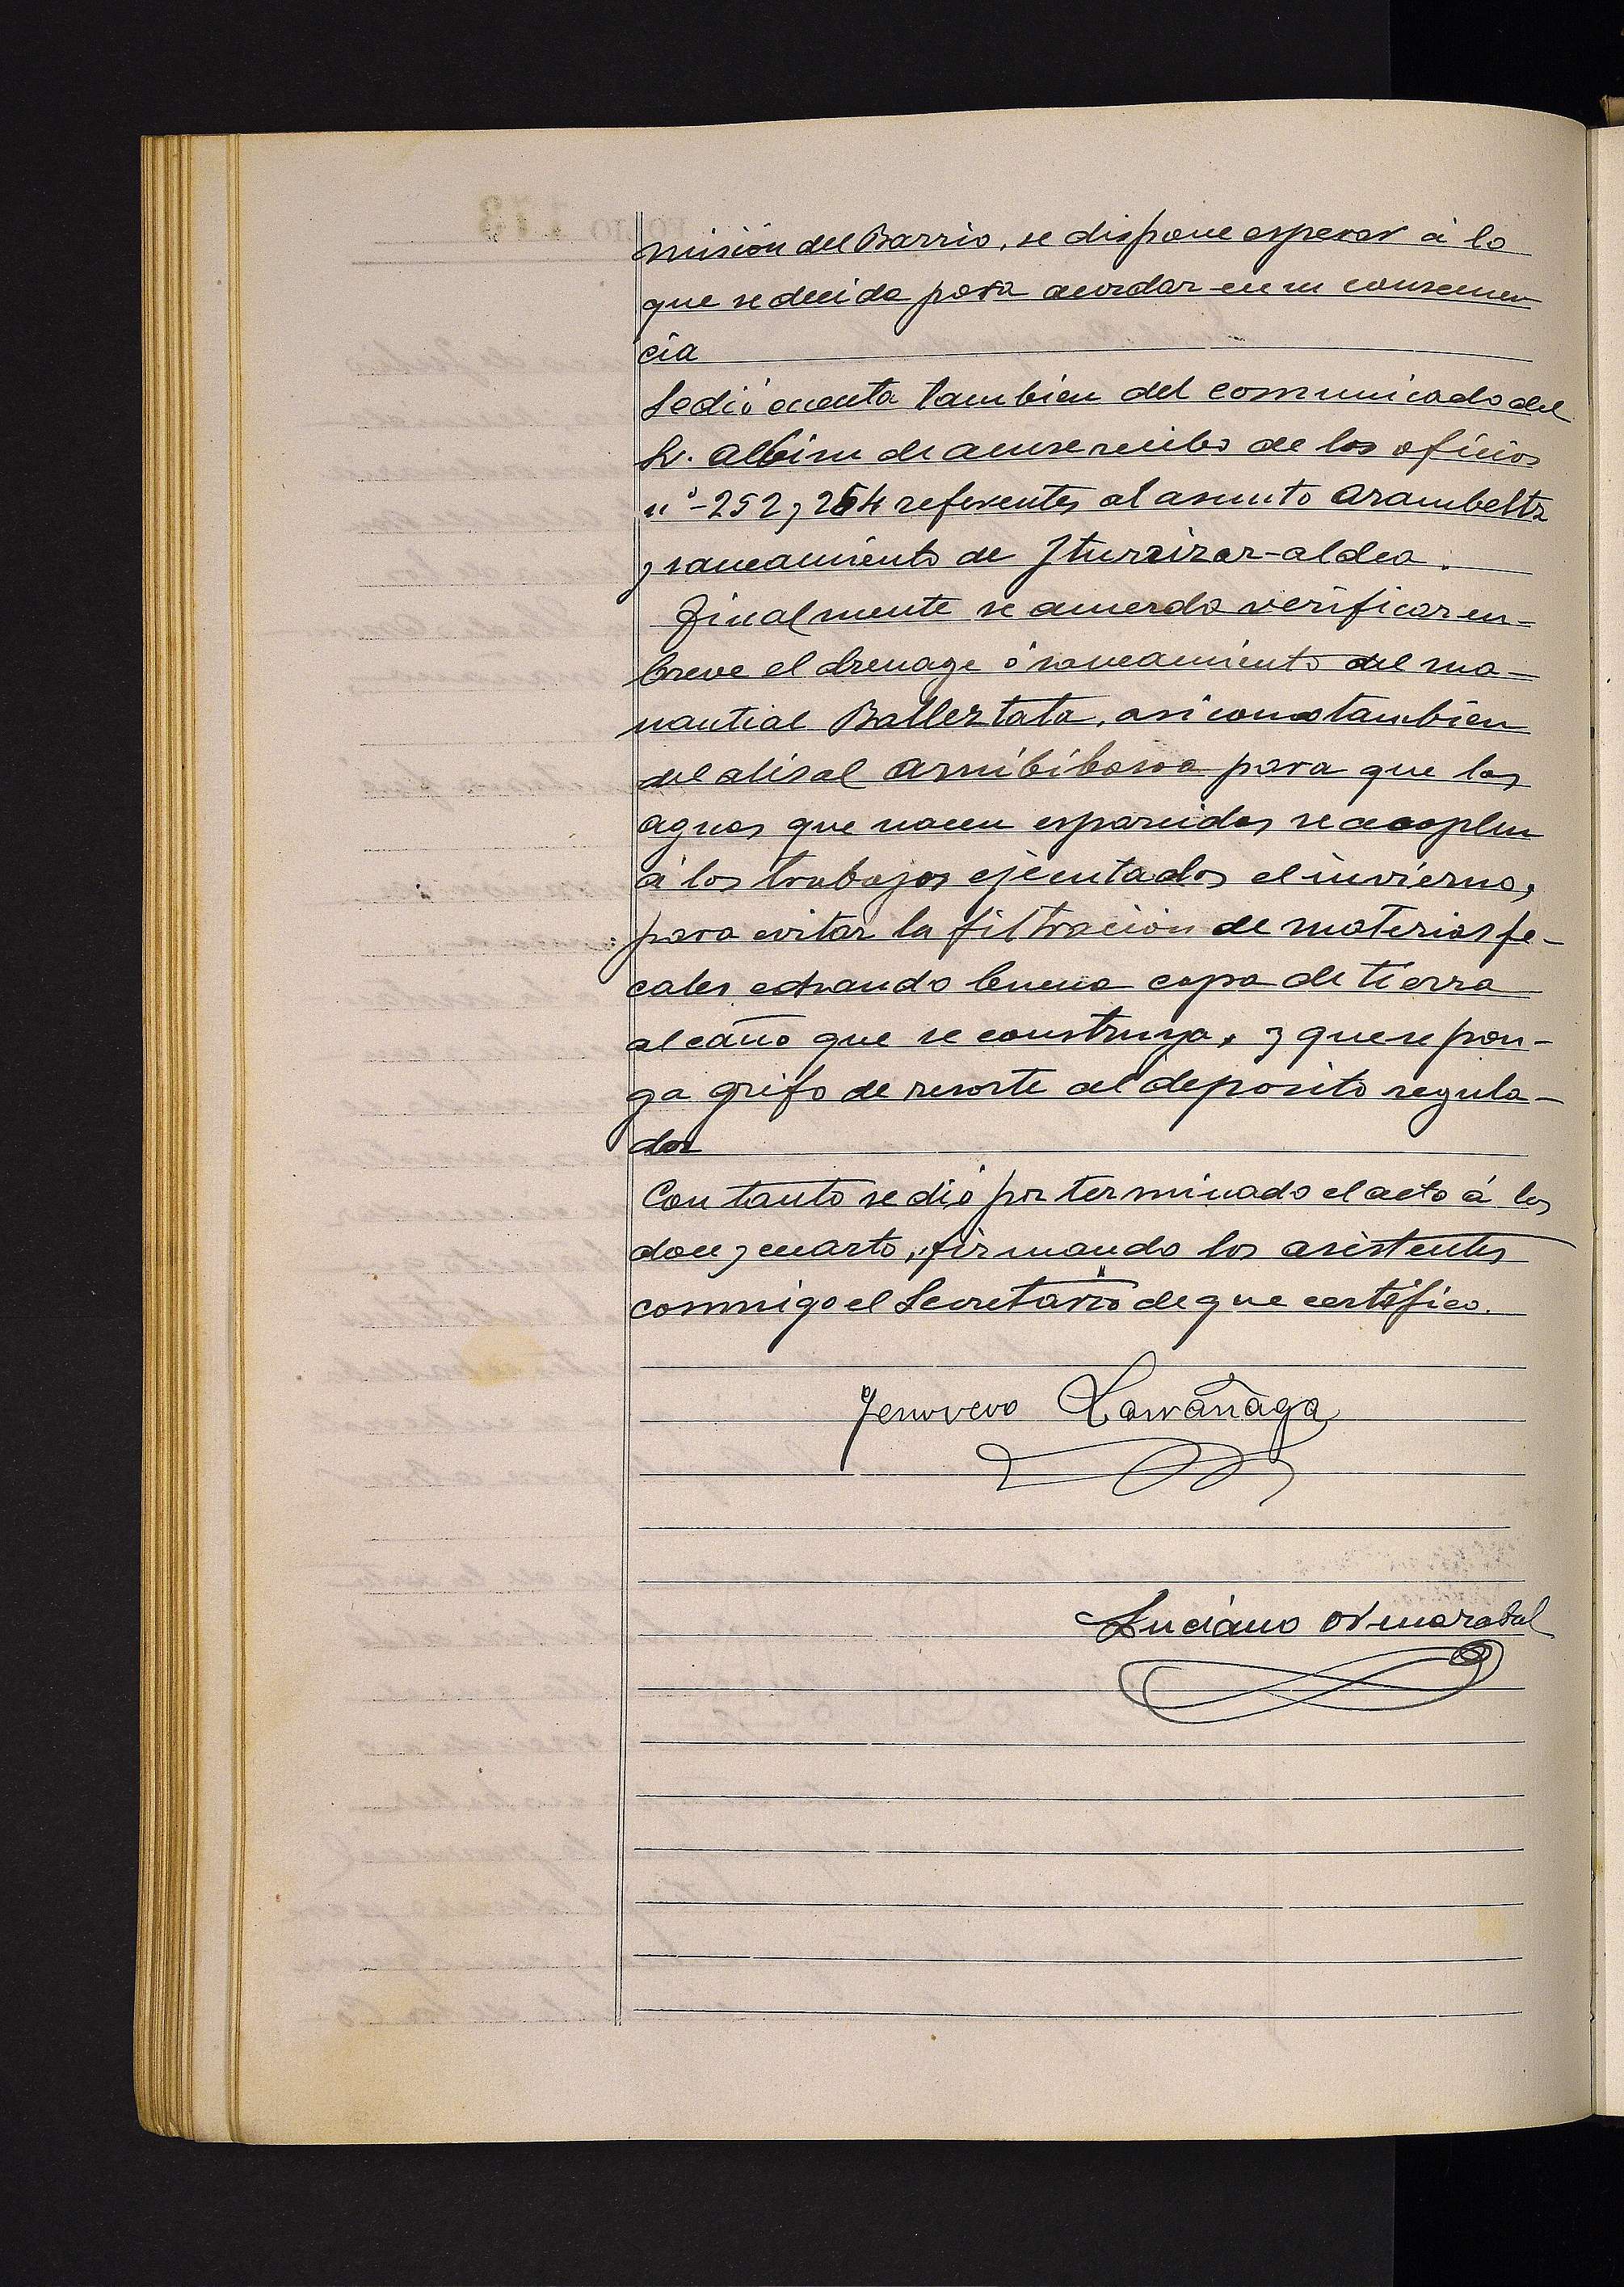 misión del Barrio, se dispone esperar á lo
que se decida para acordar en su consecuen
cia
Se dió cuenta tambien del comunicado del
Sr. Albisu de acuse recibo de los oficios
nº-252 y 254 referentes al asunto Arambeltz
y saneamiento de Iturrizar-aldea.
Finalmente se acuerda verificar en-
breve el drenage ó saneamiento del ma-
nantial Ballertata, asi como tambien
del alisal Arribibasoa para que las
aguas que nacen esparcidas se acoplen
á los trabajos ejecutados el invierno,
para evitar la filtracion de materias fe-
cales echando buena capa de tierra
al caño que se construya, y que se pon-
ga grifo de resorte al deposito regula-
dor
Con tanto se dió por terminado el acto á las
doce y cuarto, firmando los asistentes
conmigo el Secretario de que certifico.
Genoveva Larrañaga
Luciano Ormazabal